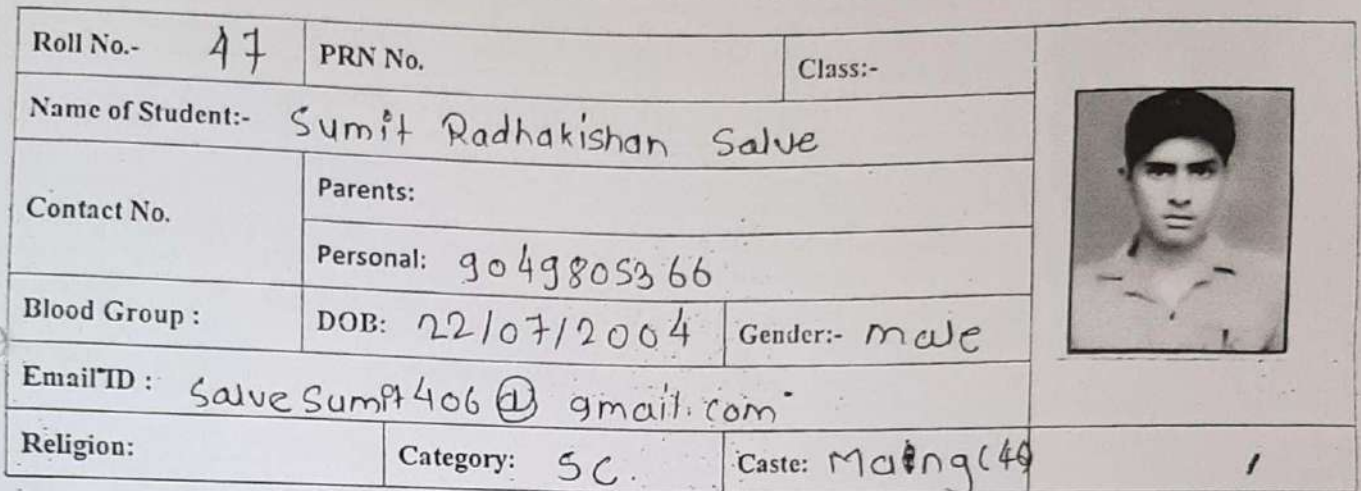 Roll No.- 47 PRN No. Class:-
Name of Student:- Sumit Radhakishan Salve
Contact No. Parents:
Personal: 9049805366
Blood Group : DOB: 22/07/2004 Gender:- male
Email ID : Salvesumit406@gmail.com
Religion: Category: SC. Caste: Mang (46